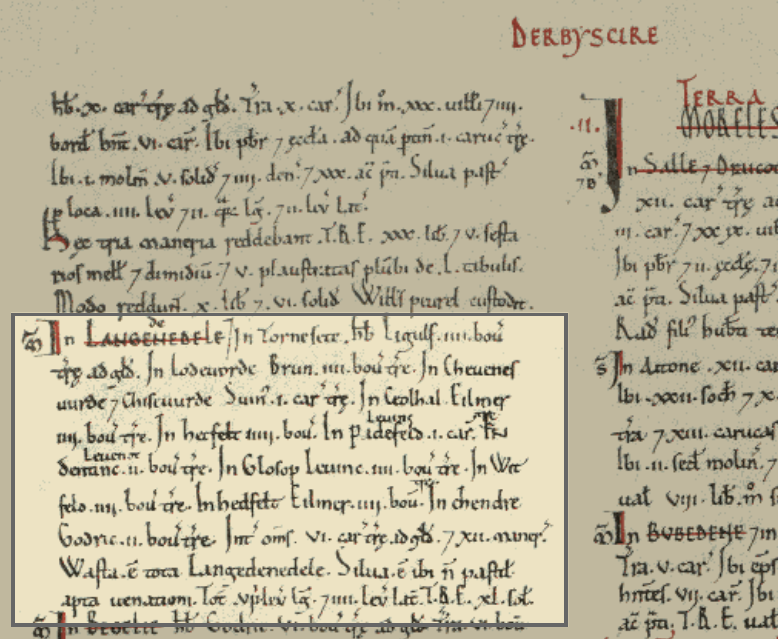 DERBYSCIRE
hb̄. x. car̄ tr̄e ad gld̄. Tra. x. car̄. Ibi m̊. xxx. uill̄i 7 iiii.
bord̄ hn̄t. vi. car̄. Ibi pb̄r 7 æccla. ad quā ptin̄. i. caruc̄ tr̄e.
Ibi. i. molin̄. v. solid̄ 7 iiii. den̄. 7 xxx. ac̄ p̄ti. Silua past̄
p loca. iiii. lev̄ 7 ii. qr̄ lḡ. 7 ii. lev̄ lat̄.
Hec tria maneria reddebant. T.R.E. xxx. lib̄. 7 v. sexta
rios mell̄ 7 dimidiū. 7 v. plaustratas plūbi de. L. tabulis.
Modo reddun̄t. x. lib̄ 7 vi. solid̄. Will̄s peurel custodit.
m̄ In LANGEDENEDELE In Tornesete. hb̄ Ligulf. iiii. bou̅
tr̄e ad gld̄. In Lodeuorde Brun. iiii. bou̅ tr̄e. In Cheuenes
uurde 7 Chiseuurde Suin̄. i. car̄ tr̄e. In Ceolhal. Eilmer
iiii. bou̅ tr̄e. In hetfelt iiii. bou̅. In padefeld Leuinc. i. car̄ tr̄e. In
dentinc Leuenot. ii. bou̅ tr̄e. In Glosop Leuinc. iiii. bou̅ tr̄e. In Wit
feld. iiii. bou̅ tr̄e. In hedfelt Eilmer. iiii. bou̅ tr̄e. In chendre
Godric. ii. bou̅ tr̄e. Int̄ om̄s. vi. car̄ tr̄e ad gld̄. 7 xii. maner̄.
Wasta. ē tota Langedenedele. Silua. ē ibi n̄ pastil̄
apta uenationi. Tot̄ viii lev̄ lḡ. 7 iiii. lev̄ lat̄. T.R.E. xl. sol̄.
m̄ In BEDELIE hb̄ Godric. vi. bou̅ tr̄e ad gld̄. Tra. vi. bou̅
TERRA
.II. MORELES
m̄ 7 B In SALLE 7 DRACO
xii. car̄ tr̄e ad
iii. car̄. 7 xx
Ibi pb̄r 7 ii. æccle. 7
ac̄ p̄ti. Silua past̄
Rad̄ fili' hub̄ti te
S In Attone. xii. car̄
Ibi. xxii. soch̄ 7 x.
tr̄a 7 xiii. carucas
Ibi. ii. sed̄ molin̄. 7
ual̄ viii. lib̄. m̊ s
m̄ In BUBEDENE 7 in
Tra. v. car̄. Ibi ep̄s
hn̄tes. vii. car̄. Ibi
ac̄ p̄ti. T.R.E. ual̄